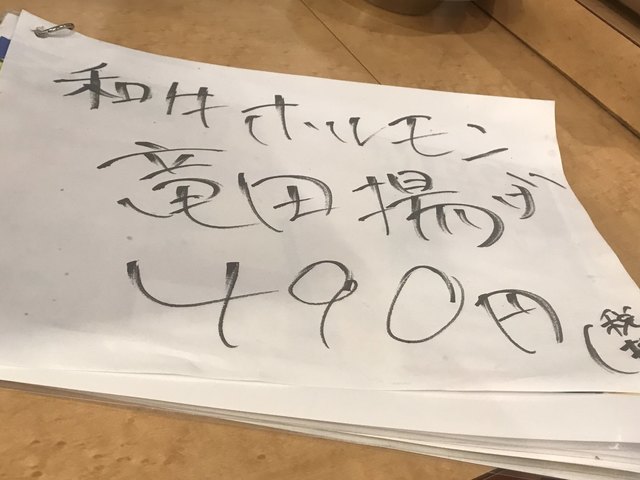 和牛ホルモン
竜田揚げ
490円(税